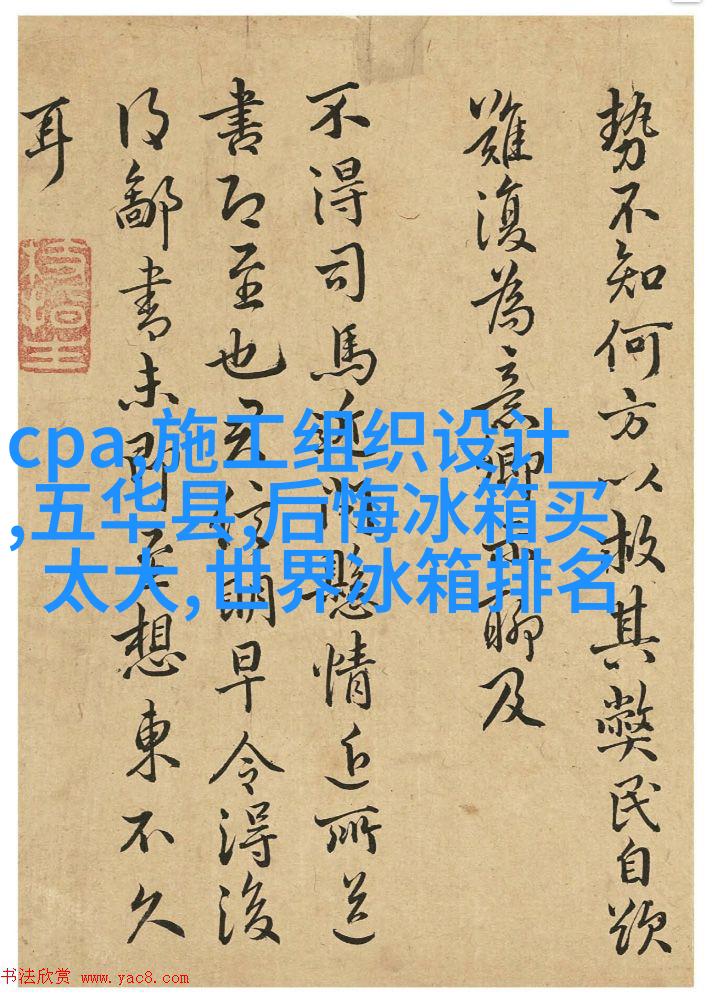 勢不知何方以救其弊民自
難復為意卿聊及
不得司馬近懸情近所送
書即至也信明早令得後
得鄙書未即至想東不久
耳
cpa,施工组织设计
,五华县,后悔冰箱买
太大,世界冰箱排名
书法欣赏 www.yac8.com